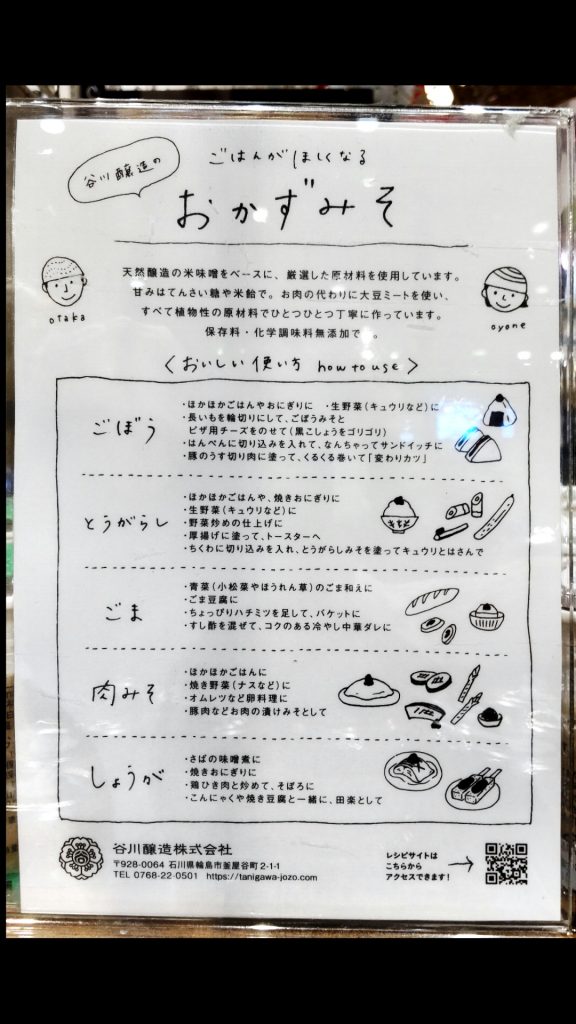 谷川醸造の
ごはんがほしくなる
おかずみそ
otaka
oyone
天然醸造の米味噌をベースに、厳選した原材料を使用しています。
甘みはてんさい糖や米飴で。お肉の代わりに大豆ミートを使い、
すべて植物性の原材料でひとつひとつ丁寧に作っています。
保存料・化学調味料無添加で 。
〈おいしい使い方 how to use〉
ごぼう
・ほかほかごはんやおにぎりに ・生野菜(キュウリなど)に
・長いもを輪切りにして、ごぼうみそと
ピザ用チーズをのせて(黒こしょうをゴリゴリ)
・はんぺんに切り込みを入れて、なんちゃってサンドイッチに
・豚のうす切り肉に塗って、くるくる巻いて「変わりカツ」
とうがらし
・ほかほかごはんや、焼きおにぎりに
・生野菜(キュウリなど)に
・野菜炒めの仕上げに
・厚揚げに塗って、トースターへ
・ちくわに切り込みを入れ、とうがらしみそを塗ってキュウリとはさんで
ごま
・青菜(小松菜やほうれん草)のごま和えに
・ごま豆腐に
・ちょっぴりハチミツを足して、バケットに
・すし酢を混ぜて、コクのある冷やし中華ダレに
肉みそ
・ほかほかごはんに
・焼き野菜(ナスなど)に
・オムレツなど卵料理に
・豚肉などお肉の漬けみそとして
しょうが
・さばの味噌煮に
・焼きおにぎりに
・鶏ひき肉と炒めて、そぼろに
・こんにゃくや焼き豆腐と一緒に、田楽として
谷川醸造株式会社
〒928-0064 石川県輪島市釜屋谷町2-1-1
TEL 0768-22-0501 https://tanigawa-jozo.com
レシピサイトは
こちらから
アクセスできます!